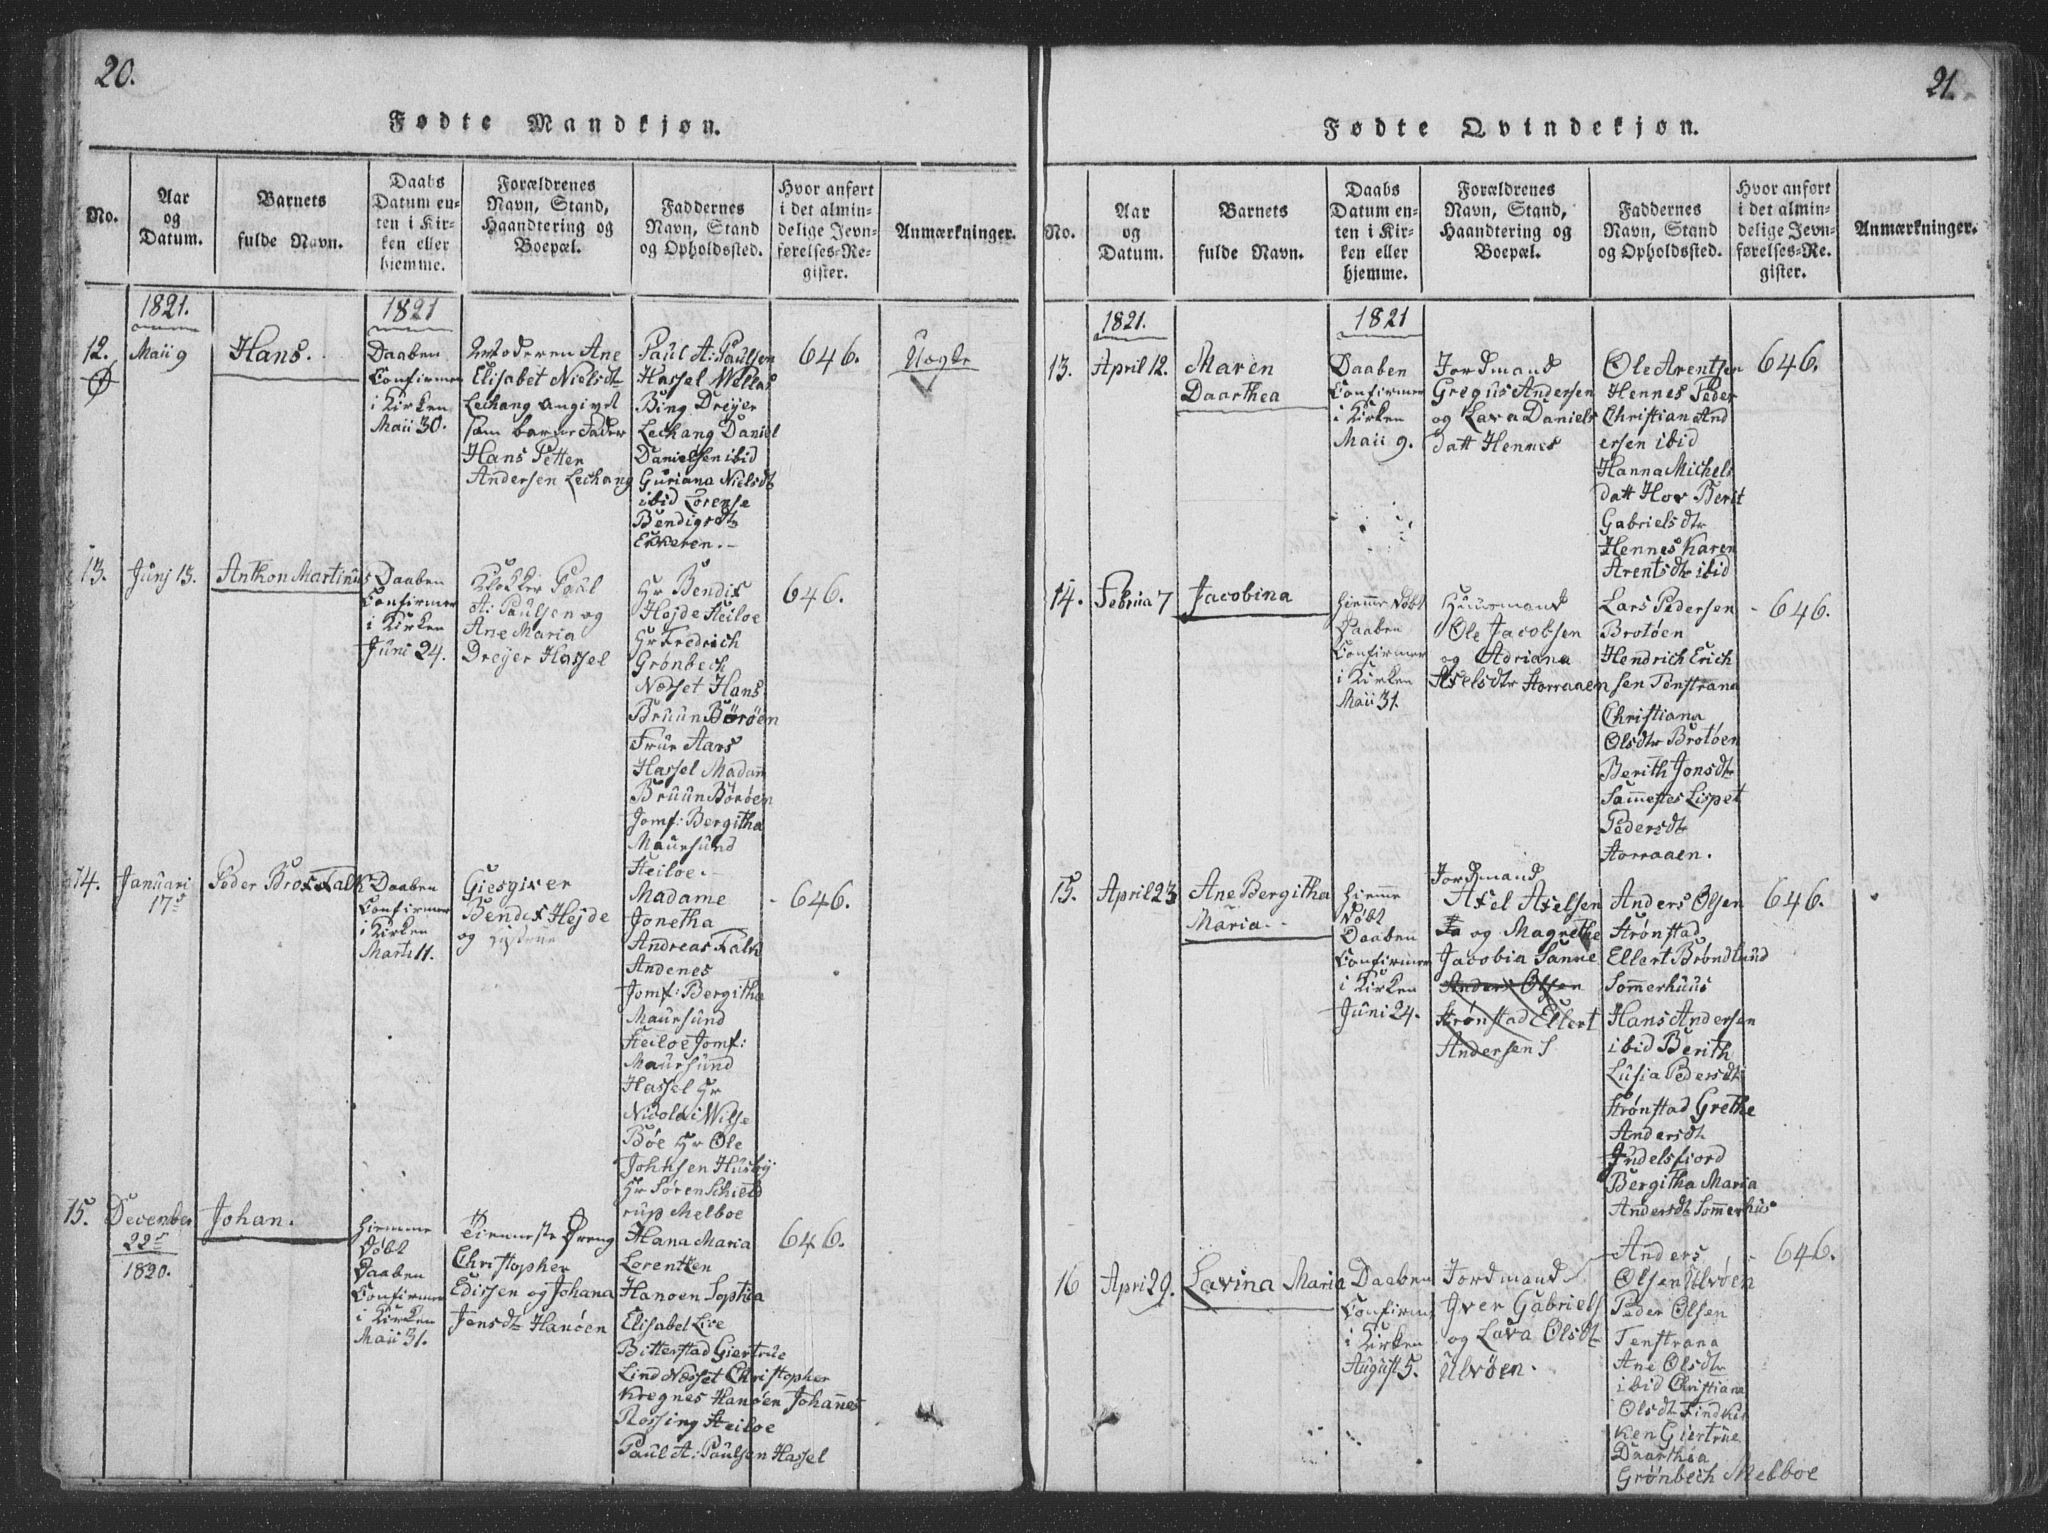 20.
Fødte Mandkjøn.
No.
Aar
og
Datum.
Barnets
fulde Navn.
Daabs
Datum en-
ten i Kir-
ken eller
hjemme.
Forældrenes
Navn, Stand,
Haandtering og
Boepæl.
Faddernes
Navn, Stand
og Opholdssted.
Hvor anført
i det almin-
delige Jevn-
førelses-Re-
gister.
Anmærkninger.
1821.
1821
12.
Maii 9
Hans.
Daaben
Confirmer
i Kirken
Maii 30.
Moderen Ane
Elisabet Nielsdt
Lechang angivet
som barne Fader
Hans Petter
Andersen Lechang
Paul A: Paulsen
Hassel Willas
Bing Dreyer
Lechang Daniel
Danielsen ibid
Guriana Nielsdt
ibid Lorense
Bendigsdtr
646.
Uægte
13.
Junj 13.
Anthon Martinus
Daaben
Confirmer
i Kirken
Juni 24.
Klokker Paul
A: Paulsen og
Ane Maria
Dreyer Hassel
Hr Bendix
Hejde Heiloe
Hr Fredrich
Grønbech
Næsset Hans
Bruun Børøen
Frue Aars
Hassel Madam
Bruun Børøen
Jomf: Bergitha
Maursund
Heiloe.
646.
14.
Januari
17de
Peder Brox Falk
Daaben
Confirmer
i Kirken
Marti 11.
Giesgiver
Bendix Hejde
og Hustrue
Madame
Jonetha
Andreas Falk
Andenes
Jomf: Bergitha
Maursund
Heiloe Jomf:
Maursund
Hassel Hr
Nicolai Wilse
Bøe Hr Ole
Johnsen Husby
Hr Søren Schield
rup Melboe
646.
15.
December
22de
1820.
Johan.
hiemme
Døbt
Daaben
Confirmer
i Kirken
Maii 31.
Tienneste Dreng
Christopher
Edissen og Johana
Jensdtr Hanøen
Hana Maria
Lorentzen
Hanoen Sophia
Elisabet Lve
Bitterstad Giertrue
Lind Næsset Christopher
Kregnes Hanøen Johannes
Rossing Heiloe
Paul A: Paulsen Hassel
646.
21.
Fødte Qvindekjøn.
No.
Aar
og
Datum.
Barnets
fulde Navn.
Daabs
Datum en-
ten i Kir-
ken eller
hjemme.
Forældrenes
Navn, Stand,
Haandtering og
Boepæl.
Faddernes
Navn, Stand
og Opholdssted.
Hvor anført
i det almin-
delige Jevn-
førelses-Re-
gister.
Anmærkninger.
1821.
1821
13.
April 12.
Maren
Daarthea
Daaben
Confirmer
i Kirken
Maii 9.
Jordmand
Gregus Andersen
og Lava Daniels
datt Hennes
Ole Arentsen
Hennes Peder
Christian And
ersen ibid
Hanna Michels
datt Hov Berit
Gabrielsdtr
Hennes Karen
Arentsdtr ibid
646.
14.
Februa 7
Jacobina
hiemme Døbt
Daaben
Confirmer
i Kirken
Maii 31.
Huusmand
Ole Jacobsen
og Adriana
Axelsdtr Horraaen
Lars Pedersen
Brotøen
Hendrich Erich
sen Tenstrana
Christiana
Olsdtr Brotøen
Berith Jonsdtr
Sammestes Lispet
Pedersdtr
Horraaen.
646.
15.
April 23
Ane Bergitha
Maria.
hiemme
Døbt
Daaben
Confirmer
i Kirken
Juni 24.
Jordmand
Axel Axelsen
og Magrethe
Jacobia Sanne
Anders Olsen
Strønstad Ellert
Andersen S
Anders Olsen
Strønstad
Ellert Brøndlund
Sommerhuus
Hans Andersen
ibid Berith
Lusia Pedersdtr
Strønstad Grethe
Andersdtr
Indelsfiord
Bergitha Maria
Andersdtr Sommerhus
646.
16
Apri 29.
Lavina Maria
Daaben
Confirm
i Kirken
August 5.
Jordmand
Iver Gabriels
og Lava Olsdtr
Ulvøen.
Anders
Olsen Ulvøen
Peder Olsen
Tenstrana
Ane Olsdtr
ibid Christiana
Olsdtr Findkei
ken Giertrue
Daarthea
Grønbech Melboe
646.